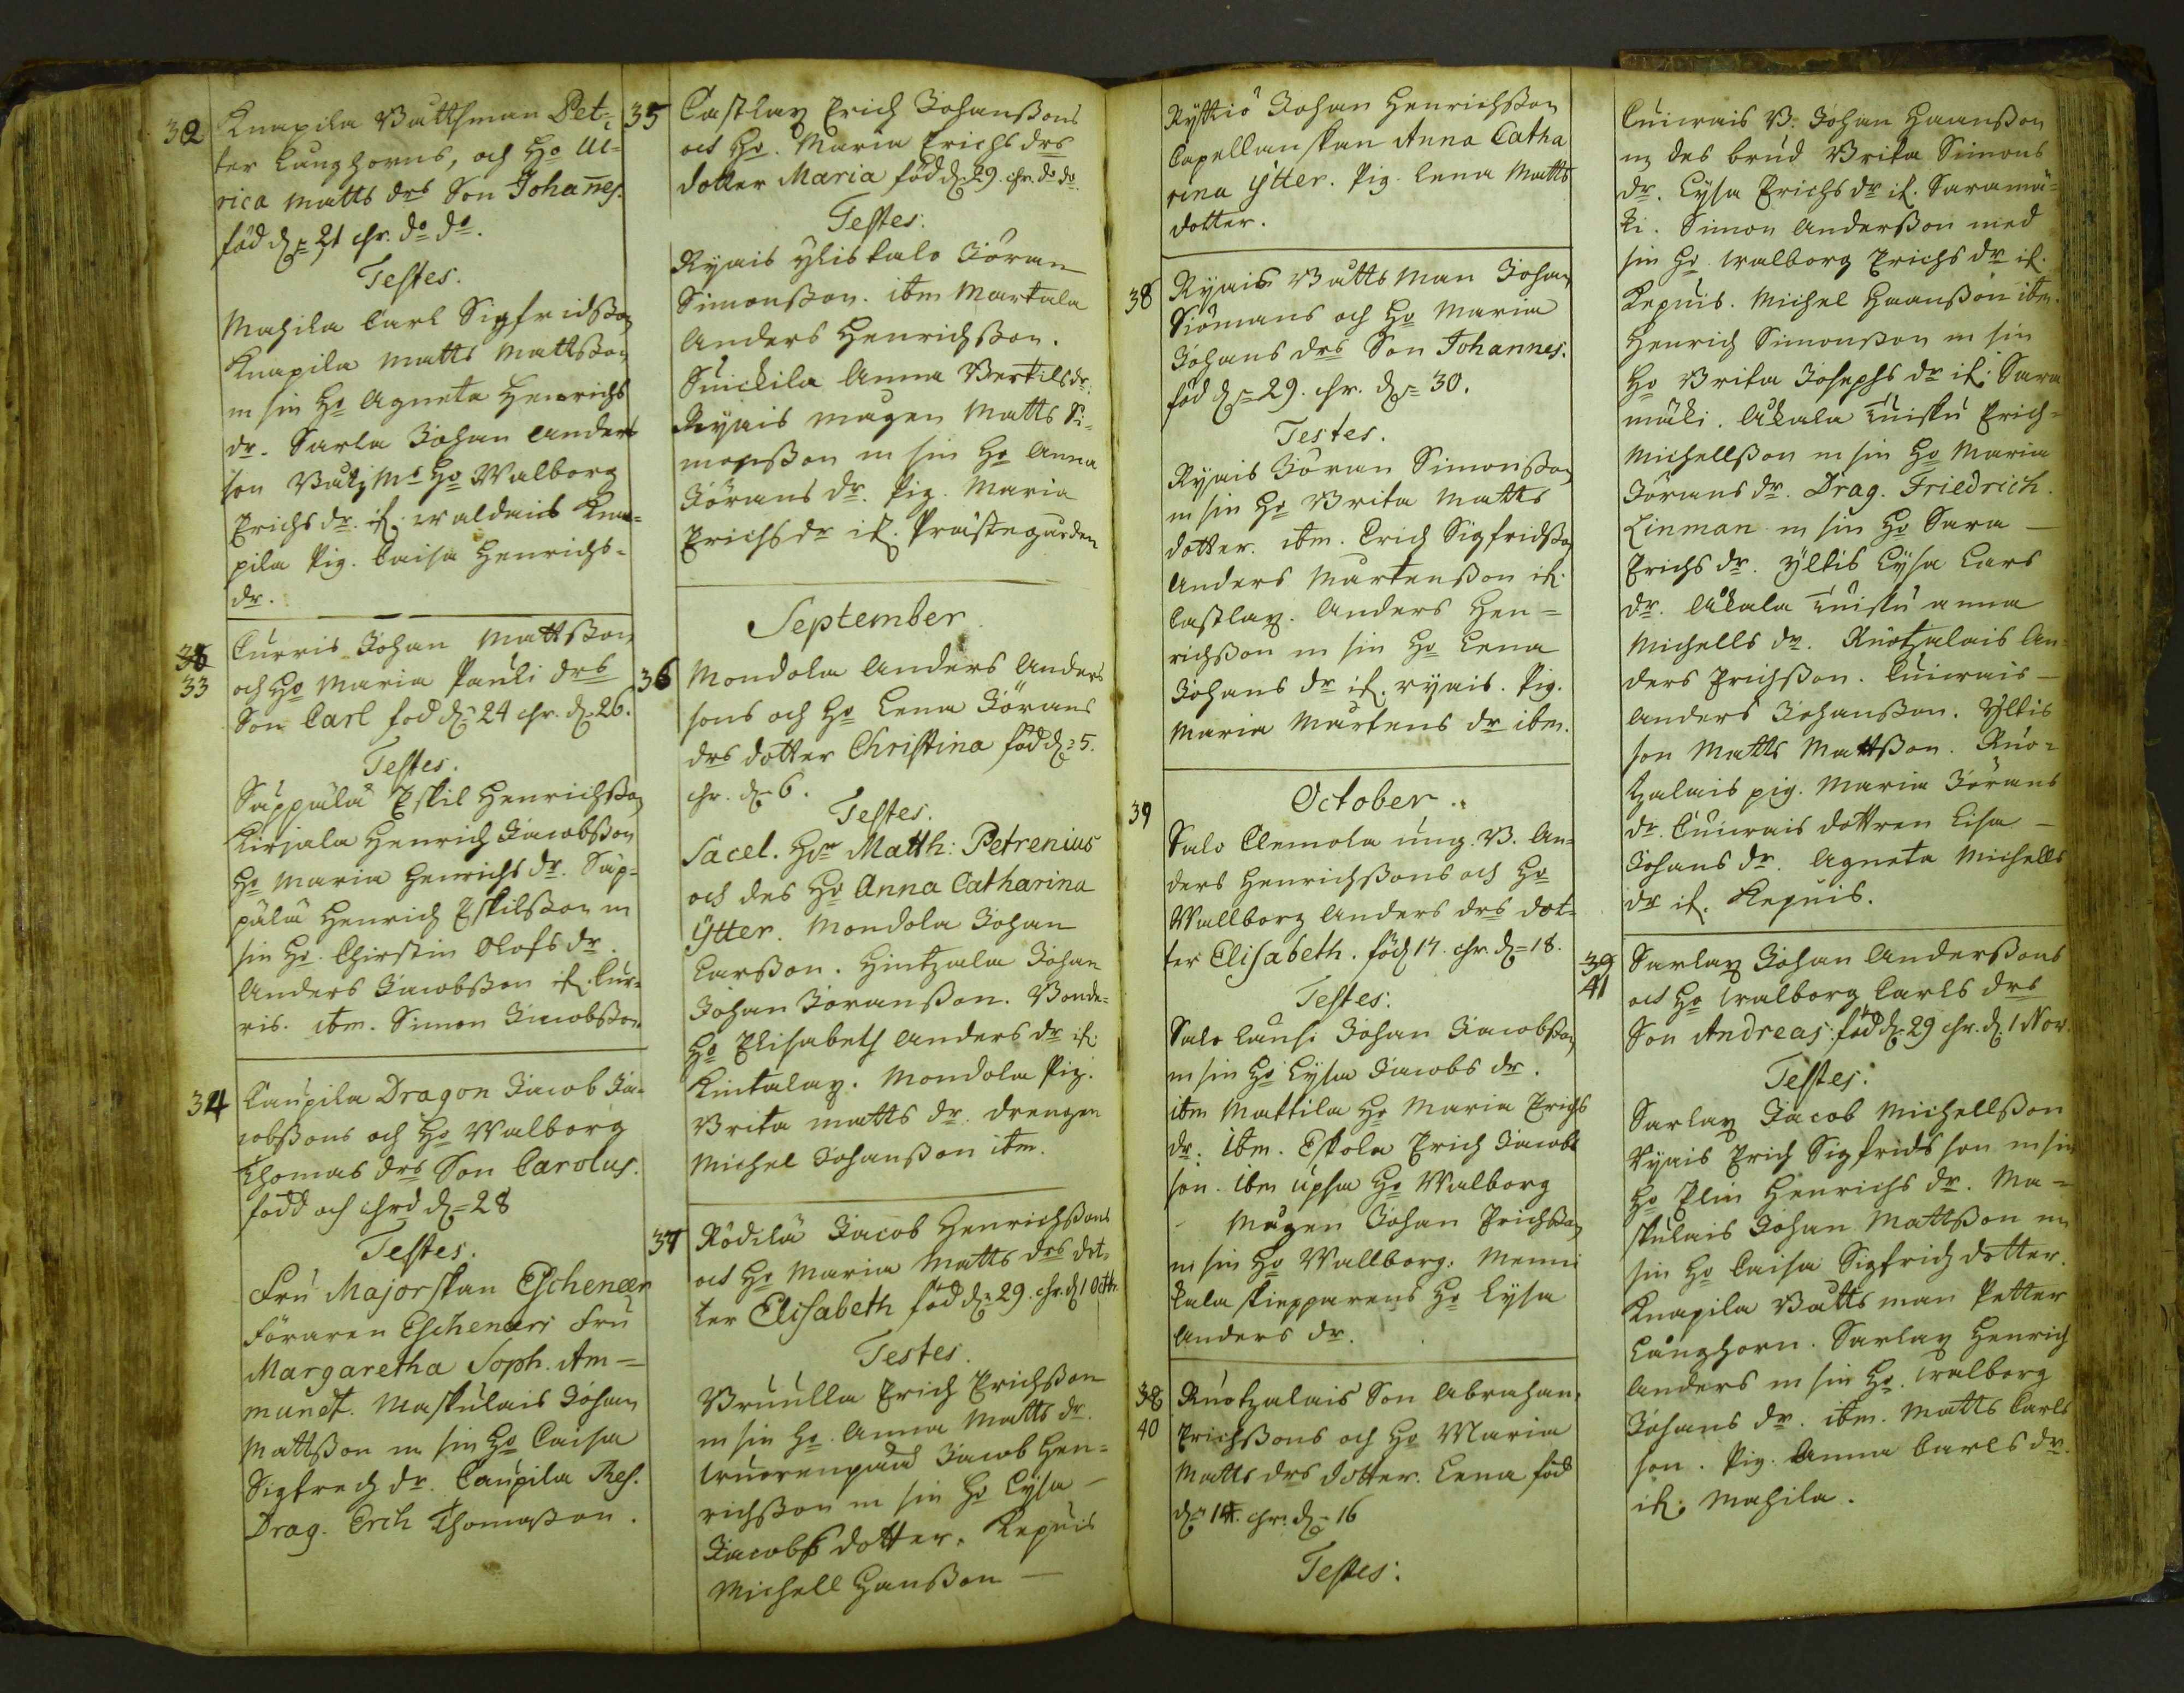 32 Knapila Båtthsman Pet-
ter Langhorns, och Ho Ul-
rica Matts drs Son Johañes.
född dn 21 chr. do do.
Testes.
Mahila Carl Sigfridsson
Knapila Matts Mattsson
m sin Ho Agneta Henrichs
dr. Sarla Johan Anders
son Ho Walborg
Erichs dr. if. Kna-
pila Pig. Caisa Henrichs-
dr.
33 Curris Johan Mattsson
och Ho Maria Pauli drs
Son Carl fod dn 24 chr. d. 26.
Testes.
Säppälä Eskil Henrichsson
Kirjala Henrich Jacobsson
Ho Maria Henrichs dr. Säp-
pälä Henrich Eskilsson m
sin Ho. Chirstin Olofs dr.
Anders Jacobsson if. Cur-
ris. itm. Simon Jacobsson.
34 Caupila Dragon Jacob Ja-
cobssons och Ho Walborg
Thomas drs Son Carolus.
född och chrd d. 28
Testes.
Fru Majorskan Eschener
Föraren Escheners Fru
Margaretha Soph. Am-
mundt. Maskulais Johan
Mattsson m sin Ho Caisa
Sigfredz dr. Caupila Res.
Drag. Erich Thomasson.
35 Castlax Erich Johanssons
och Ho. Maria Erichs drs
dotter Maria född d. 29. chr. do do.
Testes.
Ryais Yliskalo Jöran
Simonsson. itm Martala
Anders Henrichsson.
Suickila Anna Bertils dr.
Ryais mågen Matts Si-
monsson m sin Ho Anna
Jörans dr. Pig. Maria
Erichs dr if. Prästegården
September.
36 Mondola Anders Anders
sons och Ho Lena Jörans
drs dotter Christina född d. 5.
chr. d. 6.
Testes.
Sacel. Hr Matth: Petrenius
och des Ho Anna Catharina
Ytter. Mondola Johan
Larsson. Hintzala Johan
Johan Jöransson. Bonde-
Ho Elisabeth Anders dr if.
Kintalax. Mondola Pig.
Brita Matts dr. drengen
Michel Johansson itm.
37 Rödilä Jacob Henrichssons
och Ho Maria Matts drs dot-
ter Elisabeth född d. 29. chr. d. 1 Octbr.
Testes.
Bruulla Erich Erichsson
m sin Ho. Anna Matts dr.
Wuorenpää Jacob Hen-
richsson m sin Ho Lysa
Jacobs dotter. Kepuis
Michell Hansson
Kyttiö Johan Henrichsson
Capellanskan Anna Catha
rina Ytter. Pig. Lena Matts
dotter.
38 Ryais Båttsman Johan
Siömans och Ho Maria
Johans drs Son Johannes.
föd d. 29. chr. d. 30.
Testes.
Ryais Jöran Simonsson
m sin Ho Brita Matts
dotter. itm. Erich Sigfridsson
Anders Mårtensson if.
Castlax. Anders Hen-
richsson m sin Ho Lena
Johans dr if. ryais. Pig.
Maria Mårtens dr ibm.
October.
39 Salo Clemola ung. B. An-
ders Henrichssons och Ho
Wallborg Anders drs dot-
ter Elisabeth. föd 17. chr. d. 18.
Testes.
Salo Lausi Johan Jacobsson
m sin Ho Lysa Jacobs dr.
itm Mattila Ho Maria Erichs
dr. Ibm. Eskola Erich Jacobs
son. ibm upsa Ho Walborg
Mågen Johan Erichsson
m sin Ho Wallborg. Menni
kala skiepparens Ho Lysa
Anders dr.
38 Ruotzalais Son Abraham
40 Erichssons och Ho Maria
Matts drs dotter. Lena född
d. 14. chr. d. 16
Testes:
Cuiwais B. Johan Haansson
m des brud Brita Simons
dr. Lysa Erichs dr if. Saramä-
ki. Simon Andersson med
sin Ho. Walborg Erichs dr if.
Kepuis. Michel Haansson itm.
Henrich Simonsson m sin
Ho Brita Josephs dr if. Sara
mäki. Åkala Tuisku Erich
Michellsson m sin Ho Maria
Jörans dr. Drag. Friedrich.
Linman m sin Ho Sara
Erichs dr. Yltis Lysa Lars
dr. Åkala Tuisku Anna
Michells dr. Ruotzalais An-
ders Erichsson. Cuiwais
Anders Johansson. Yltis
son Matts Mattsson. Ruo-
tzalais pig. Maria Jörans
dr. Cuiwais dottren Lisa
Johans dr. Agneta Michells
dr if. Kepuis.
39
41 Sarlax Johan Anderssons
och Ho Walborg Carls drs
Son Andreas: född d. 29 chr. d. 1 Nov.
Testes:
Sarlax Jacob Michellsson
Ryais Erich Sigfrids son m sin
Ho Elin Henrichs dr. Ma-
skulais Johan Mattsson m
sin Ho Caisa Sigfridz dotter.
Knapila Båttsman Petter
Långhorn. Sarlax Henrich
Anders m sin Ho. Walborg
Johans dr. itm. Matts Carls
son. Pig. Anna Carls dr.
if. Mahila.